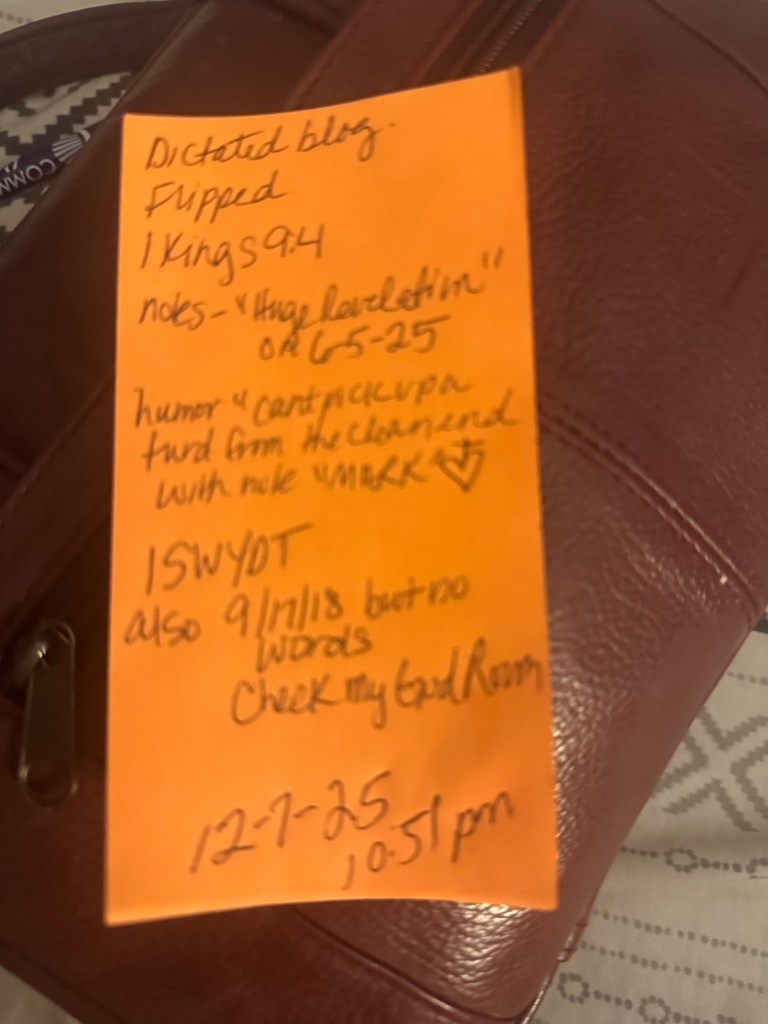 Dictated blog.
Flipped
1 Kings 9:4
notes - "Huge Revelation"
on 6-5-25
humor "cant pick up a
turd from the clean end
with note "MARK"
ISWYDT
also 9/17/18 but no
words
Check my God Room
12-7-25
10:51 pm
COMM